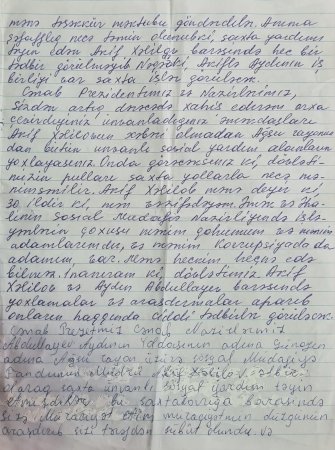 mənə təşəkkür məktubu göndərdilər. Amma
şəffaflıq necə təmin olunub ki, saxta yardımı
təyin edən Arif Xəlilov barəsində heç bir
tədbir görülməyib. Niyə ki, Ariflə Aydının iş
birliyi var saxta işlər görülsün.
Cənab Prezidentimiz və Nazirlərimiz,
Sizdən artıq dərəcədə xahiş edirəm arxa
çevirdiyiniz ünvanladığınız əməkdaşları
Arif Xəlilovun xəbəri olmadan Ağsu rayonun
dan bütün ünvanlı sosial yardım alanların
yoxlayasınız. Onda görərsiniz ki, dövləti-
mizin pulları saxta yollarla necə mə-
nimsənilir. Arif Xəlilov mənə deyir ki,
30 ildir ki, mən vəzifədəyəm. Əmək və Əha-
linin Sosial Müdafiə Nazirliyində işlə-
yənlərin çoxusu mənim qohumum və mənim
adamlarımdı, və mənim Korrupsiyada da
adamım var. Mənə heç kim, heçnə edə
bilməz. İnanıram ki, dövlətimiz Arif
Xəlilov və Aydın Abdullayev barəsində
yoxlamalar və araşdırmalar aparıb
onların haqqında ciddi tədbirlər görülsün.
Cənab Prezidentimiz Cənab Nazirlərimiz
Abdullayev Aydının iddiasının adına
adına Ağsu rayon üzrə sosial Müdafiə
Fondunun Müdiri Arif Xəlilov
saxta ünvanlı sosial yardım təyin
etmişdilər bu saxtakarlığa barəsində
sizə Müraciət etdim müraciətimin düzgünlüyü
araşdırılıb sizin tərəfdən sübut olundu. və